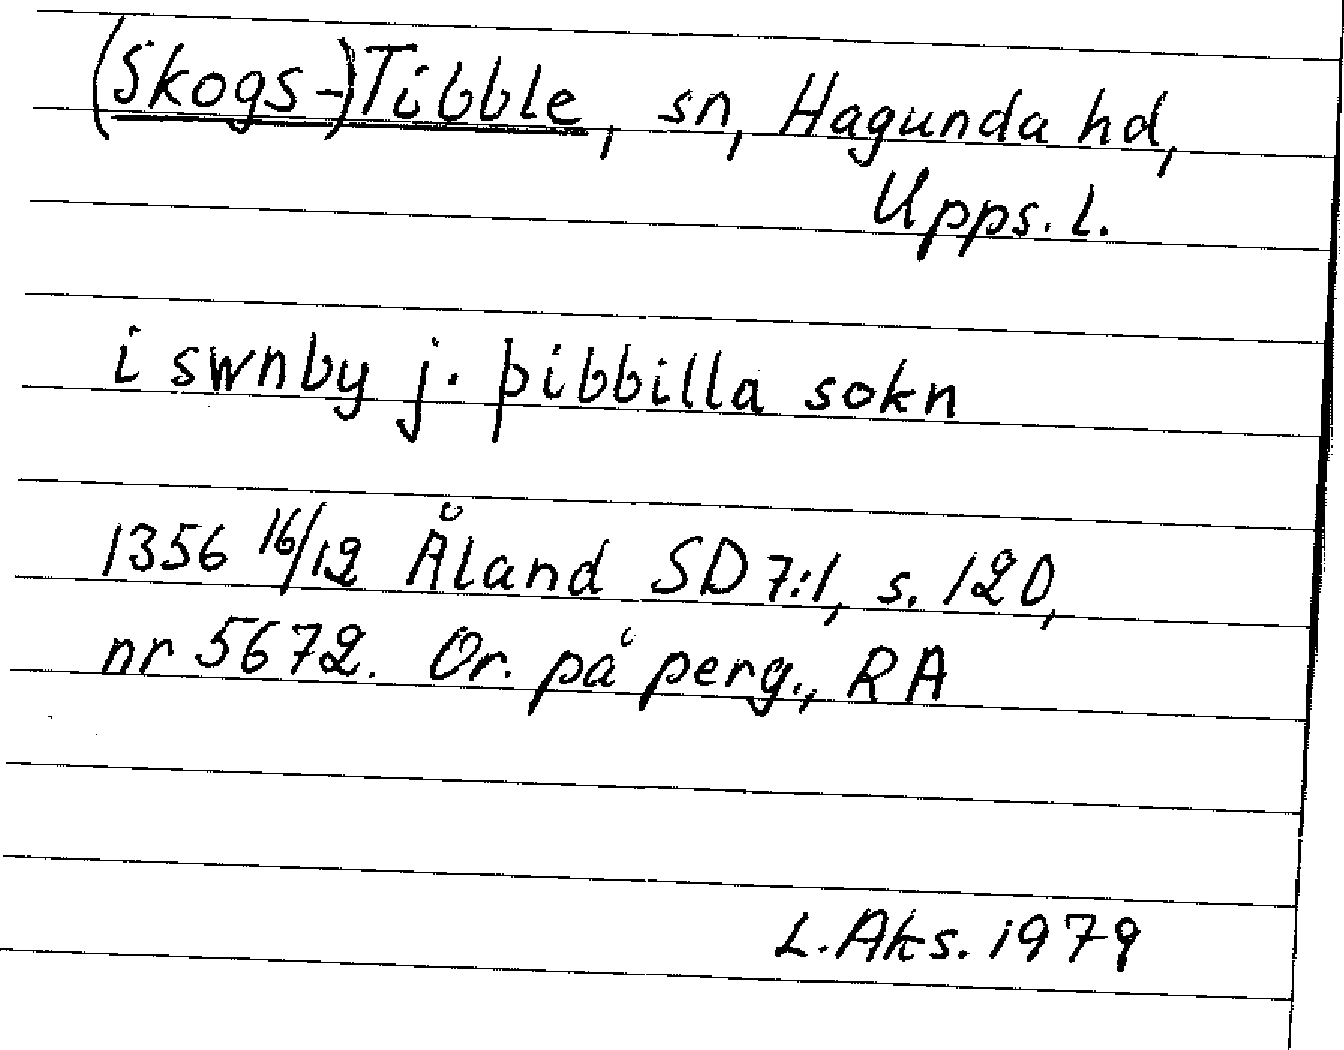 (Skogs-)Tibble, sn, Hagunda hd,
Upps. l.
i swnby j. þibbilla sokn
1356 16/12 Åland SD 7:1, s. 120,
nr 5672. Or. på perg., RA
L. Aks. 1979